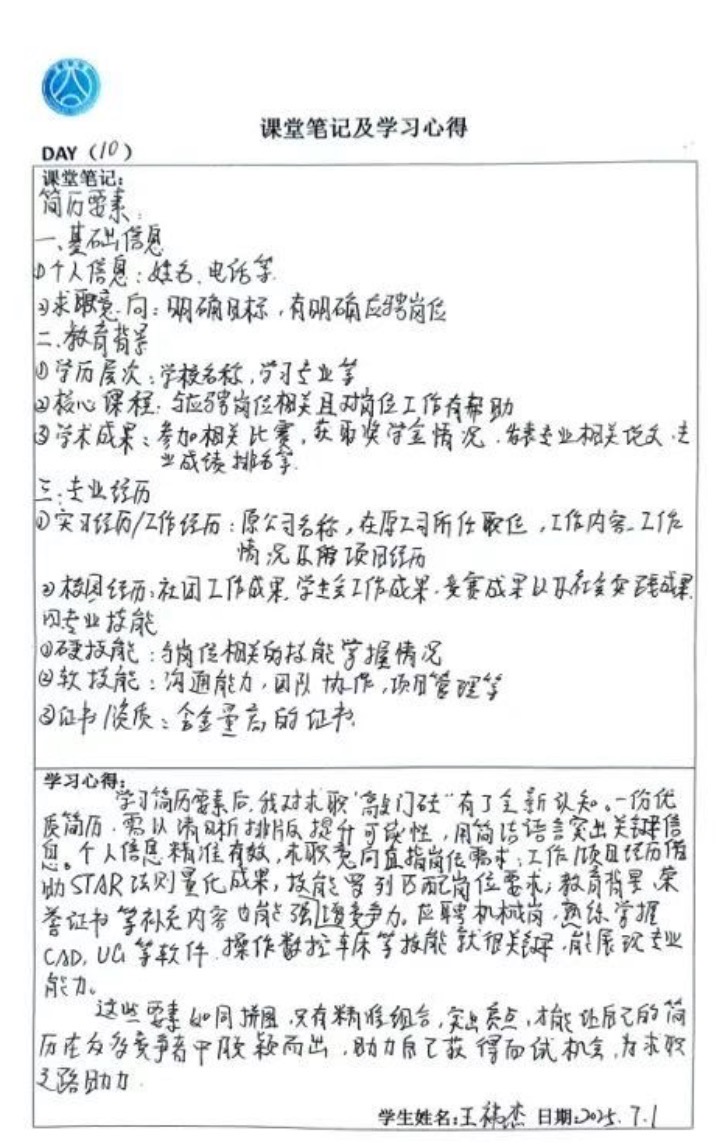 课堂笔记及学习心得
DAY（10）
课堂笔记：
简历要素：
一、基础信息
①个人信息：姓名、电话等
②求职意向：明确目标，有明确应聘岗位
二、教育背景
①学历层次：学校名称，学习专业等
②核心课程：与应聘岗位相关且对岗位工作有帮助
③学术成果：参加相关比赛，获取奖学金情况，发表专业相关论文，专
业成绩排名等
三、专业经历
①实习经历/工作经历：原公司名称，在原公司所任职位，工作内容、工作
情况及所项目经历
②校园经历：社团工作成果，学生会工作成果，竞赛成果以及社会实践成果
四专业技能
①硬技能：与岗位相关的技能掌握情况
②软技能：沟通能力，团队协作，项目管理等
③证书/资质：含金量高的证书
学习心得：
学习简历要素后，我对求职“敲门砖”有了全新认知。一份优
质简历，需以清晰排版提升可读性，用简洁语言突出关键信
息。个人信息精准有效，求职意向直指岗位需求；工作/项目经历借
助STAR法则量化成果，技能罗列匹配岗位要求；教育背景、荣
誉证书等补充内容也能强增竞争力。应聘机械岗，熟练掌握
CAD，UG等软件，操作数控车床等技能就很关键，能展现专业
能力。
这些要素如同拼图，只有精准组合，突出亮点，才能让自己的简
历在众多竞争者中脱颖而出，助力自己获得面试机会，为求职
之路助力
学生姓名：王祎杰 日期：2025.7.1